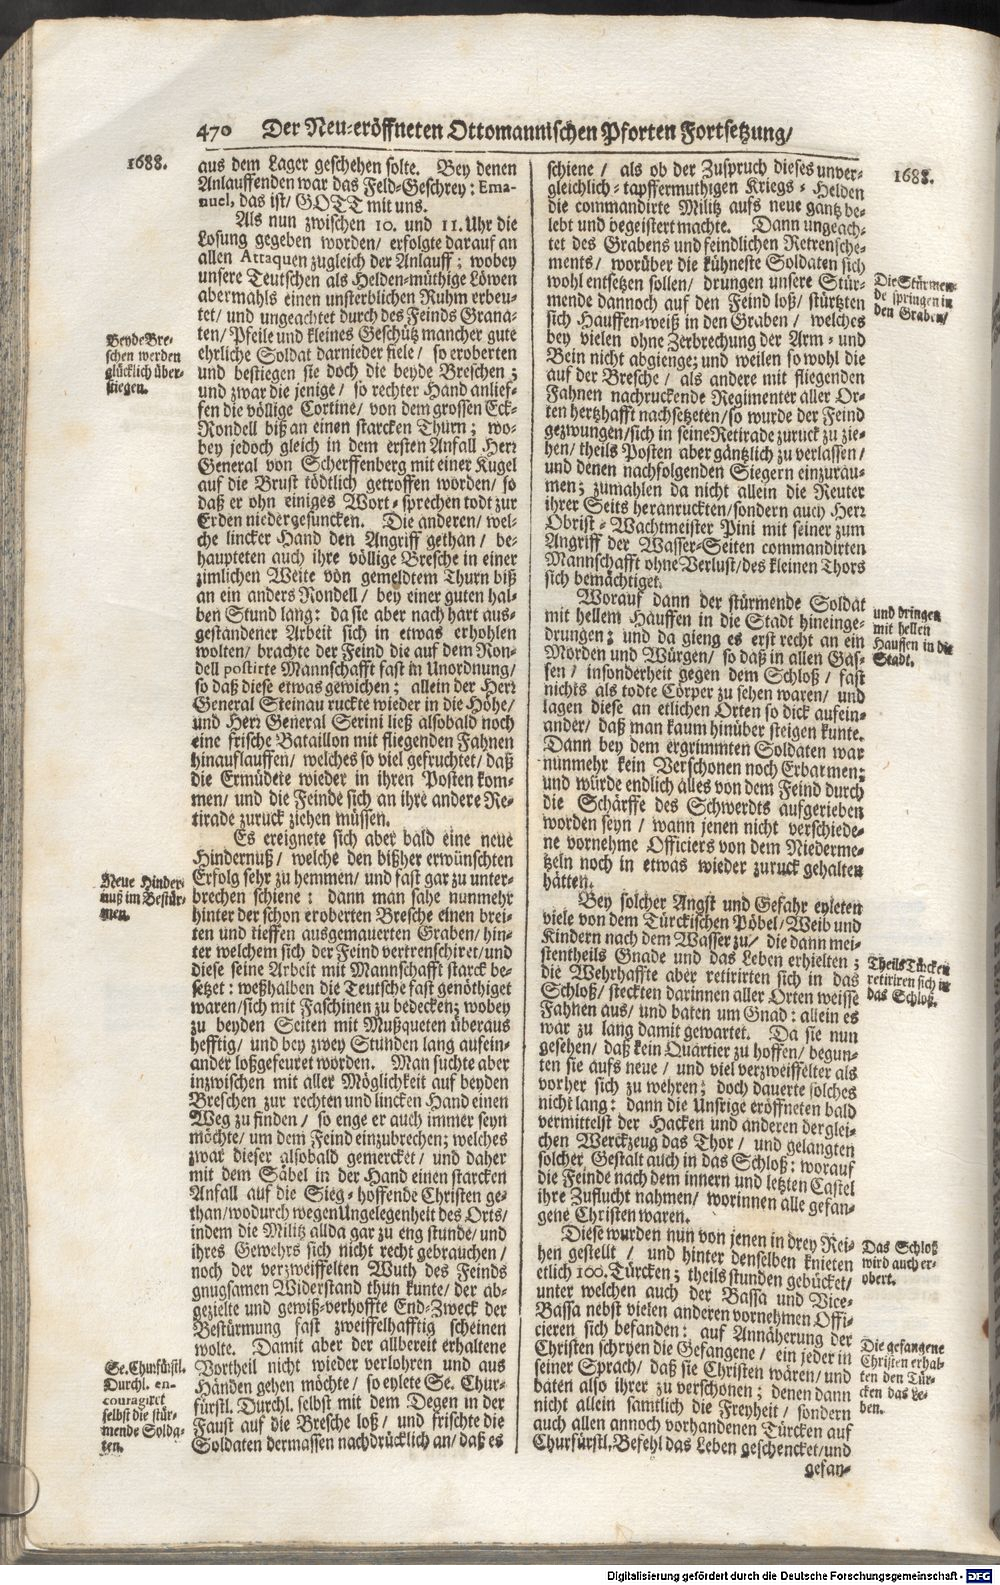 470 Der Neu-eröffneten Ottomannischen Pforten Fortsetzung/
1688.
aus dem Lager geschehen solte. Bey denen
Anlauffenden war das Feld-Geschrey: Ema-
nuel, das ist/ GOTT mit uns.
Als nun zwischen 10. und 11. Uhr die
Losung gegeben worden/ erfolgte darauf an
allen Attaquen zugleich der Anlauff; wobey
unsere Teutschen als Helden-müthige Löwen
abermahls einen unsterblichen Ruhm erbeu-
tet/ und ungeachtet durch des Feinds Grana-
ten/ Pfeile und kleines Geschütz mancher gute
ehrliche Soldat darnieder fiele/ so eroberten
und bestiegen sie doch die beyde Breschen;
und zwar die jenige/ so rechter Hand anlief-
fen die völlige Cortine/ von dem grossen Eck-
Rondell biß an einen starcken Thurn; wo-
bey jedoch gleich in dem ersten Anfall Herr
General von Scherffenberg mit einer Kugel
auf die Brust tödtlich getroffen worden/ so
daß er ohn einiges Wort-sprechen todt zur
Erden niedergesuncken. Die anderen/ wel-
che lincker Hand den Angriff gethan/ be-
haupteten auch ihre völlige Bresche in einer
zimlichen Weite von gemeldtem Thurn biß
an ein anders Rondell/ bey einer guten hal-
ben Stund lang: da sie aber nach hart aus-
gestandener Arbeit sich in etwas erhohlen
wolten/ brachte der Feind die auf dem Ron-
dell postirte Mannschafft fast in Unordnung/
so daß diese etwas gewichen; allein der Herr
General Steinau ruckte wieder in die Höhe/
und Herr General Serini ließ alsobald noch
eine frische Bataillon mit fliegenden Fahnen
hinauflauffen/ welches so viel gefruchtet/ daß
die Ermüdete wieder in ihren Posten kom-
men/ und die Feinde sich an ihre andere Re-
tirade zuruck ziehen müssen.
Es ereignete sich aber bald eine neue
Hindernuß/ welche den bißher erwünschten
Erfolg sehr zu hemmen/ und fast gar zu unter-
brechen schiene: dann man sahe nunmehr
hinter der schon eroberten Bresche einen brei-
ten und tieffen ausgemauerten Graben/ hin-
ter welchem sich der Feind vertrenschiret/ und
diese seine Arbeit mit Mannschafft starck be-
setzet: weßhalben die Teutsche fast genöthiget
waren/ sich mit Faschinen zu bedecken; wobey
zu beyden Seiten mit Mußqueten überaus
hefftig/ und bey zwey Stunden lang aufein-
ander loßgefeuret worden. Man suchte aber
inzwischen mit aller Möglichkeit auf beyden
Breschen zur rechten und lincken Hand einen
Weg zu finden/ so enge er auch immer seyn
möchte/ um dem Feind einzubrechen; welches
zwar dieser alsobald gemercket/ und daher
mit dem Säbel in der Hand einen starcken
Anfall auf die Sieg-hoffende Christen ge-
than/ wodurch wegen Ungelegenheit des Orts/
indem die Militz allda gar zu eng stunde/ und
ihres Gewehrs sich nicht recht gebrauchen/
noch der verzweiffelten Wuth des Feinds
gnugsamen Widerstand thun kunte/ der ab-
gezielte und gewiß-verhoffte End-Zweck der
Bestürmung fast zweiffelhafftig scheinen
wolte. Damit aber der allbereit erhaltene
Vortheil nicht wieder verlohren und aus
Händen gehen möchte/ so eylete Se. Chur-
fürstl. Durchl. selbst mit dem Degen in der
Faust auf die Bresche loß/ und frischte die
Soldaten dermassen nachdrücklich an/ daß es
Beyde Bre-
schen werden
glücklich über-
stiegen.
Neue Hinder-
nuß im Bestür-
men.
Se. Churfürstl.
Durchl. en-
couragiret
selbst die stür-
mende Solda-
ten.
schiene/ als ob der Zuspruch dieses unver-
gleichlich-tapffermuthigen Kriegs-Helden
die commandirte Militz aufs neue gantz be-
lebt und begeistert machte. Dann ungeach-
tet des Grabens und feindlichen Retrensche-
ments/ worüber die kühneste Soldaten sich
wohl entsetzen sollen/ drungen unsere Stür-
mende dannoch auf den Feind loß/ stürtzten
sich Hauffen-weiß in den Graben/ welches
bey vielen ohne Zerbrechung der Arm- und
Bein nicht abgienge; und weilen so wohl die
auf der Bresche/ als andere mit fliegenden
Fahnen nachruckende Regimenter aller Or-
ten hertzhafft nachsetzeten/ so wurde der Feind
gezwungen/ sich in seine Retirade zuruck zu zie-
hen/ theils Posten aber gäntzlich zu verlassen/
und denen nachfolgenden Siegern einzuräu-
men; zumahlen da nicht allein die Reuter
ihrer Seits heranruckten/ sondern auch Herr
Obrist-Wachtmeister Pini mit seiner zum
Angriff der Wasser-Seiten commandirten
Mannschafft ohne Verlust/ des kleinen Thors
sich bemächtiget.
Worauf dann der stürmende Soldat
mit hellem Hauffen in die Stadt hineinge-
drungen; und da gieng es erst recht an ein
Morden und Würgen/ so daß in allen Gas-
sen/ insonderheit gegen dem Schloß/ fast
nichts als todte Cörper zu sehen waren/ und
lagen diese an etlichen Orten so dick aufein-
ander/ daß man kaum hinüber steigen kunte.
Dann bey dem ergrimmten Soldaten war
nunmehr kein Verschonen noch Erbarmen;
und würde endlich alles von dem Feind durch
die Schärffe des Schwerdts aufgerieben
worden seyn/ wann jenen nicht verschiede-
ne vornehme Officiers von dem Niederme-
tzeln noch in etwas wieder zuruck gehalten
hätten.
Bey solcher Angst und Gefahr eyleten
viele von dem Türckischen Pöbel/ Weib und
Kindern nach dem Wasser zu/ die dann mei-
stentheils Gnade und das Leben erhielten;
die Wehrhaffte aber retirirten sich in das
Schloß/ steckten darinnen aller Orten weisse
Fahnen aus/ und baten um Gnad: allein es
war zu lang damit gewartet. Da sie nun
gesehen/ daß kein Quartier zu hoffen/ begun-
ten sie aufs neue/ und viel verzweiffelter als
vorher sich zu wehren; doch dauerte solches
nicht lang: dann die Unsrige eröffneten bald
vermittelst der Hacken und anderen derglei-
chen Werckzeug das Thor/ und gelangten
solcher Gestalt auch in das Schloß: worauf
die Feinde nach dem innern und letzten Castel
ihre Zuflucht nahmen/ worinnen alle gefan-
gene Christen waren.
Diese wurden nun von jenen in drey Rei-
hen gestellt/ und hinter denselben knieten
etlich 100. Türcken; theils stunden gebücket/
unter welchen auch der Bassa und Vice-
Bassa nebst vielen anderen vornehmen Offi-
cieren sich befanden: auf Annäherung der
Christen schryen die Gefangene/ ein jeder in
seiner Sprach/ daß sie Christen wären/ und
baten also ihrer zu verschonen; denen dann
nicht allein sämtlich die Freyheit/ sondern
auch allen annoch vorhandenen Türcken auf
Churfürstl. Befehl das Leben geschencket/ und
gefan-
1688.
Die Stürmen-
de springen in
den Graben/
und dringen
mit hellen
Hauffen in die
Stadt.
Theils Türcken
retiriren sich in
das Schloß.
Das Schloß
wird auch er-
obert.
Die gefangene
Christen erhal-
ten den Tür-
cken das Le-
ben.
Digitalisierung gefördert durch die Deutsche Forschungsgemeinschaft - DFG